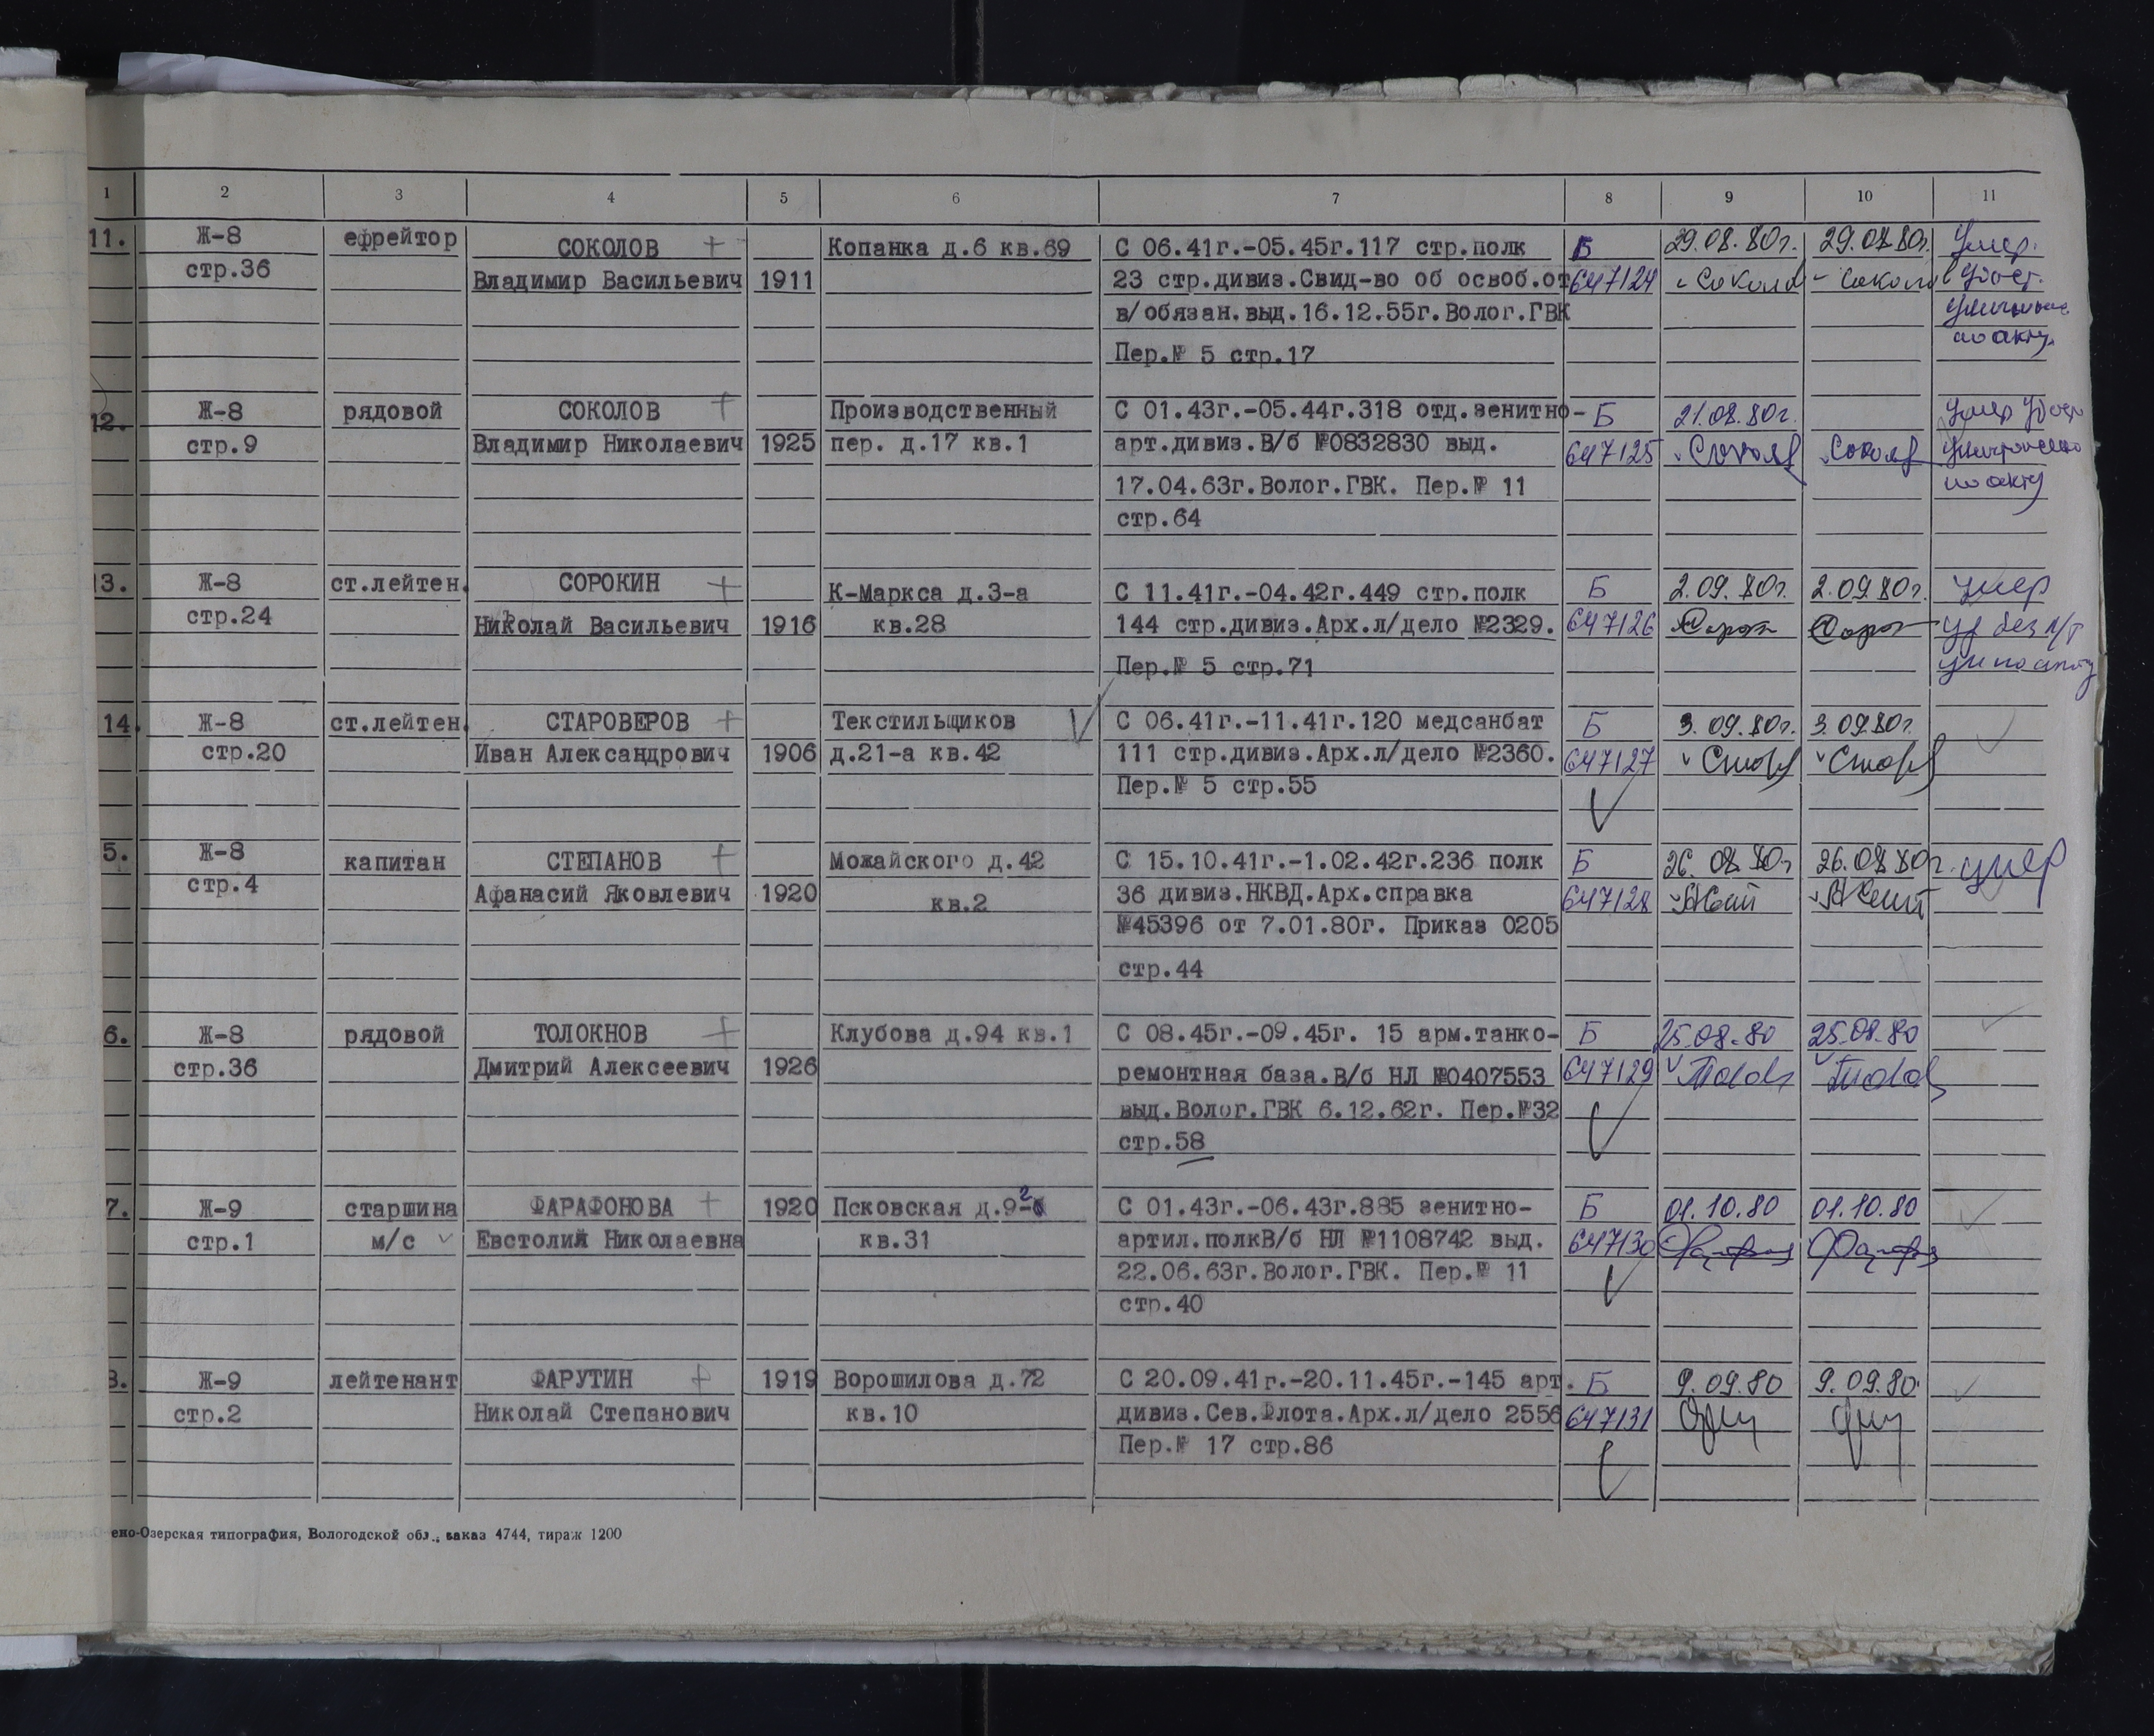 1 2 3 4 5 6 7 8 9 10 11
11. Ж-8 ефрейтор СОКОЛОВ + Копанка д.6 кв.69 С 06.41г.-05.45г.117 стр.полк Б 29.08.80г. 29.08.80г. Умер.
стр.36 Владимир Васильевич 1911 23 стр.дивиз.Свид-во об освоб.от 647124 Соколов Соколов
в/обязан.выд.16.12.55г.Волог.ГВК
Пер.№ 5 стр.17 по акту.
12. Ж-8 рядовой СОКОЛОВ + Производственный С 01.43г.-05.44г.318 отд.зенитно- Б 21.08.80г. Умер
стр.9 Владимир Николаевич 1925 пер. д.17 кв.1 арт.дивиз.В/б №0832830 выд. 647125 Соколов Соколов
17.04.63г.Волог.ГВК. Пер.№ 11 по акту
стр.64
13. Ж-8 ст.лейтен. СОРОКИН + К-Маркса д.3-а С 11.41г.-04.42г.449 стр.полк Б 2.09.80г. 2.09.80г. умер
стр.24 Николай Васильевич 1916 кв.28 144 стр.дивиз.Арх.л/дело №2329. 647126
Пер.№ 5 стр.71
14. Ж-8 ст.лейтен. СТАРОВЕРОВ + Текстильщиков С 06.41г.-11.41г.120 медсанбат Б 3.09.80г. 3.09.80г.
стр.20 Иван Александрович 1906 д.21-а кв.42 111 стр.дивиз.Арх.л/дело №2360. 647127
Пер.№ 5 стр.55
5. Ж-8 капитан СТЕПАНОВ + Можайского д.42 С 15.10.41г.-1.02.42г.236 полк Б 26.08.80г 26.08.80г. умер
стр.4 Афанасий Яковлевич 1920 кв.2 36 дивиз.НКВД.Арх.справка 647128
№45396 от 7.01.80г. Приказ 0205
стр.44
6. Ж-8 рядовой ТОЛОКНОВ + Клубова д.94 кв.1 С 08.45г.-09.45г. 15 арм.танко- Б 25.08.80 25.08.80
стр.36 Дмитрий Алексеевич 1926 ремонтная база.В/б НЛ №0407553 647129
выд.Волог.ГВК 6.12.62г. Пер.№32
стр.58
7. Ж-9 старшина ФАРАФОНОВА + 1920 Псковская д.9-2 С 01.43г.-06.43г.885 зенитно- Б 01.10.80 01.10.80
стр.1 м/с Евстолия Николаевна кв.31 артил.полкВ/б НЛ №1108742 выд. 647130
22.06.63г.Волог.ГВК. Пер.№ 11
стр.40
8. Ж-9 лейтенант ФАРУТИН + 1919 Ворошилова д.72 С 20.09.41г.-20.11.45г.-145 арт. Б 9.09.80 9.09.80
стр.2 Николай Степанович кв.10 дивиз.Сев.Флота.Арх.л/дело 2556 647131
Пер.№ 17 стр.86
ено-Озерская типография, Вологодской обл., заказ 4744, тираж 1200